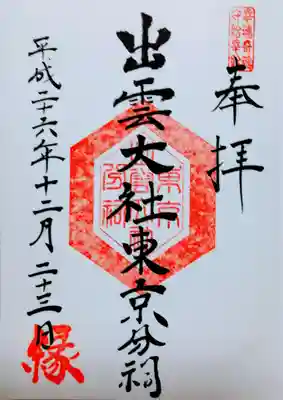 奉拝
出雲大社東京分祠
平成二十六年十二月二十三日
縁